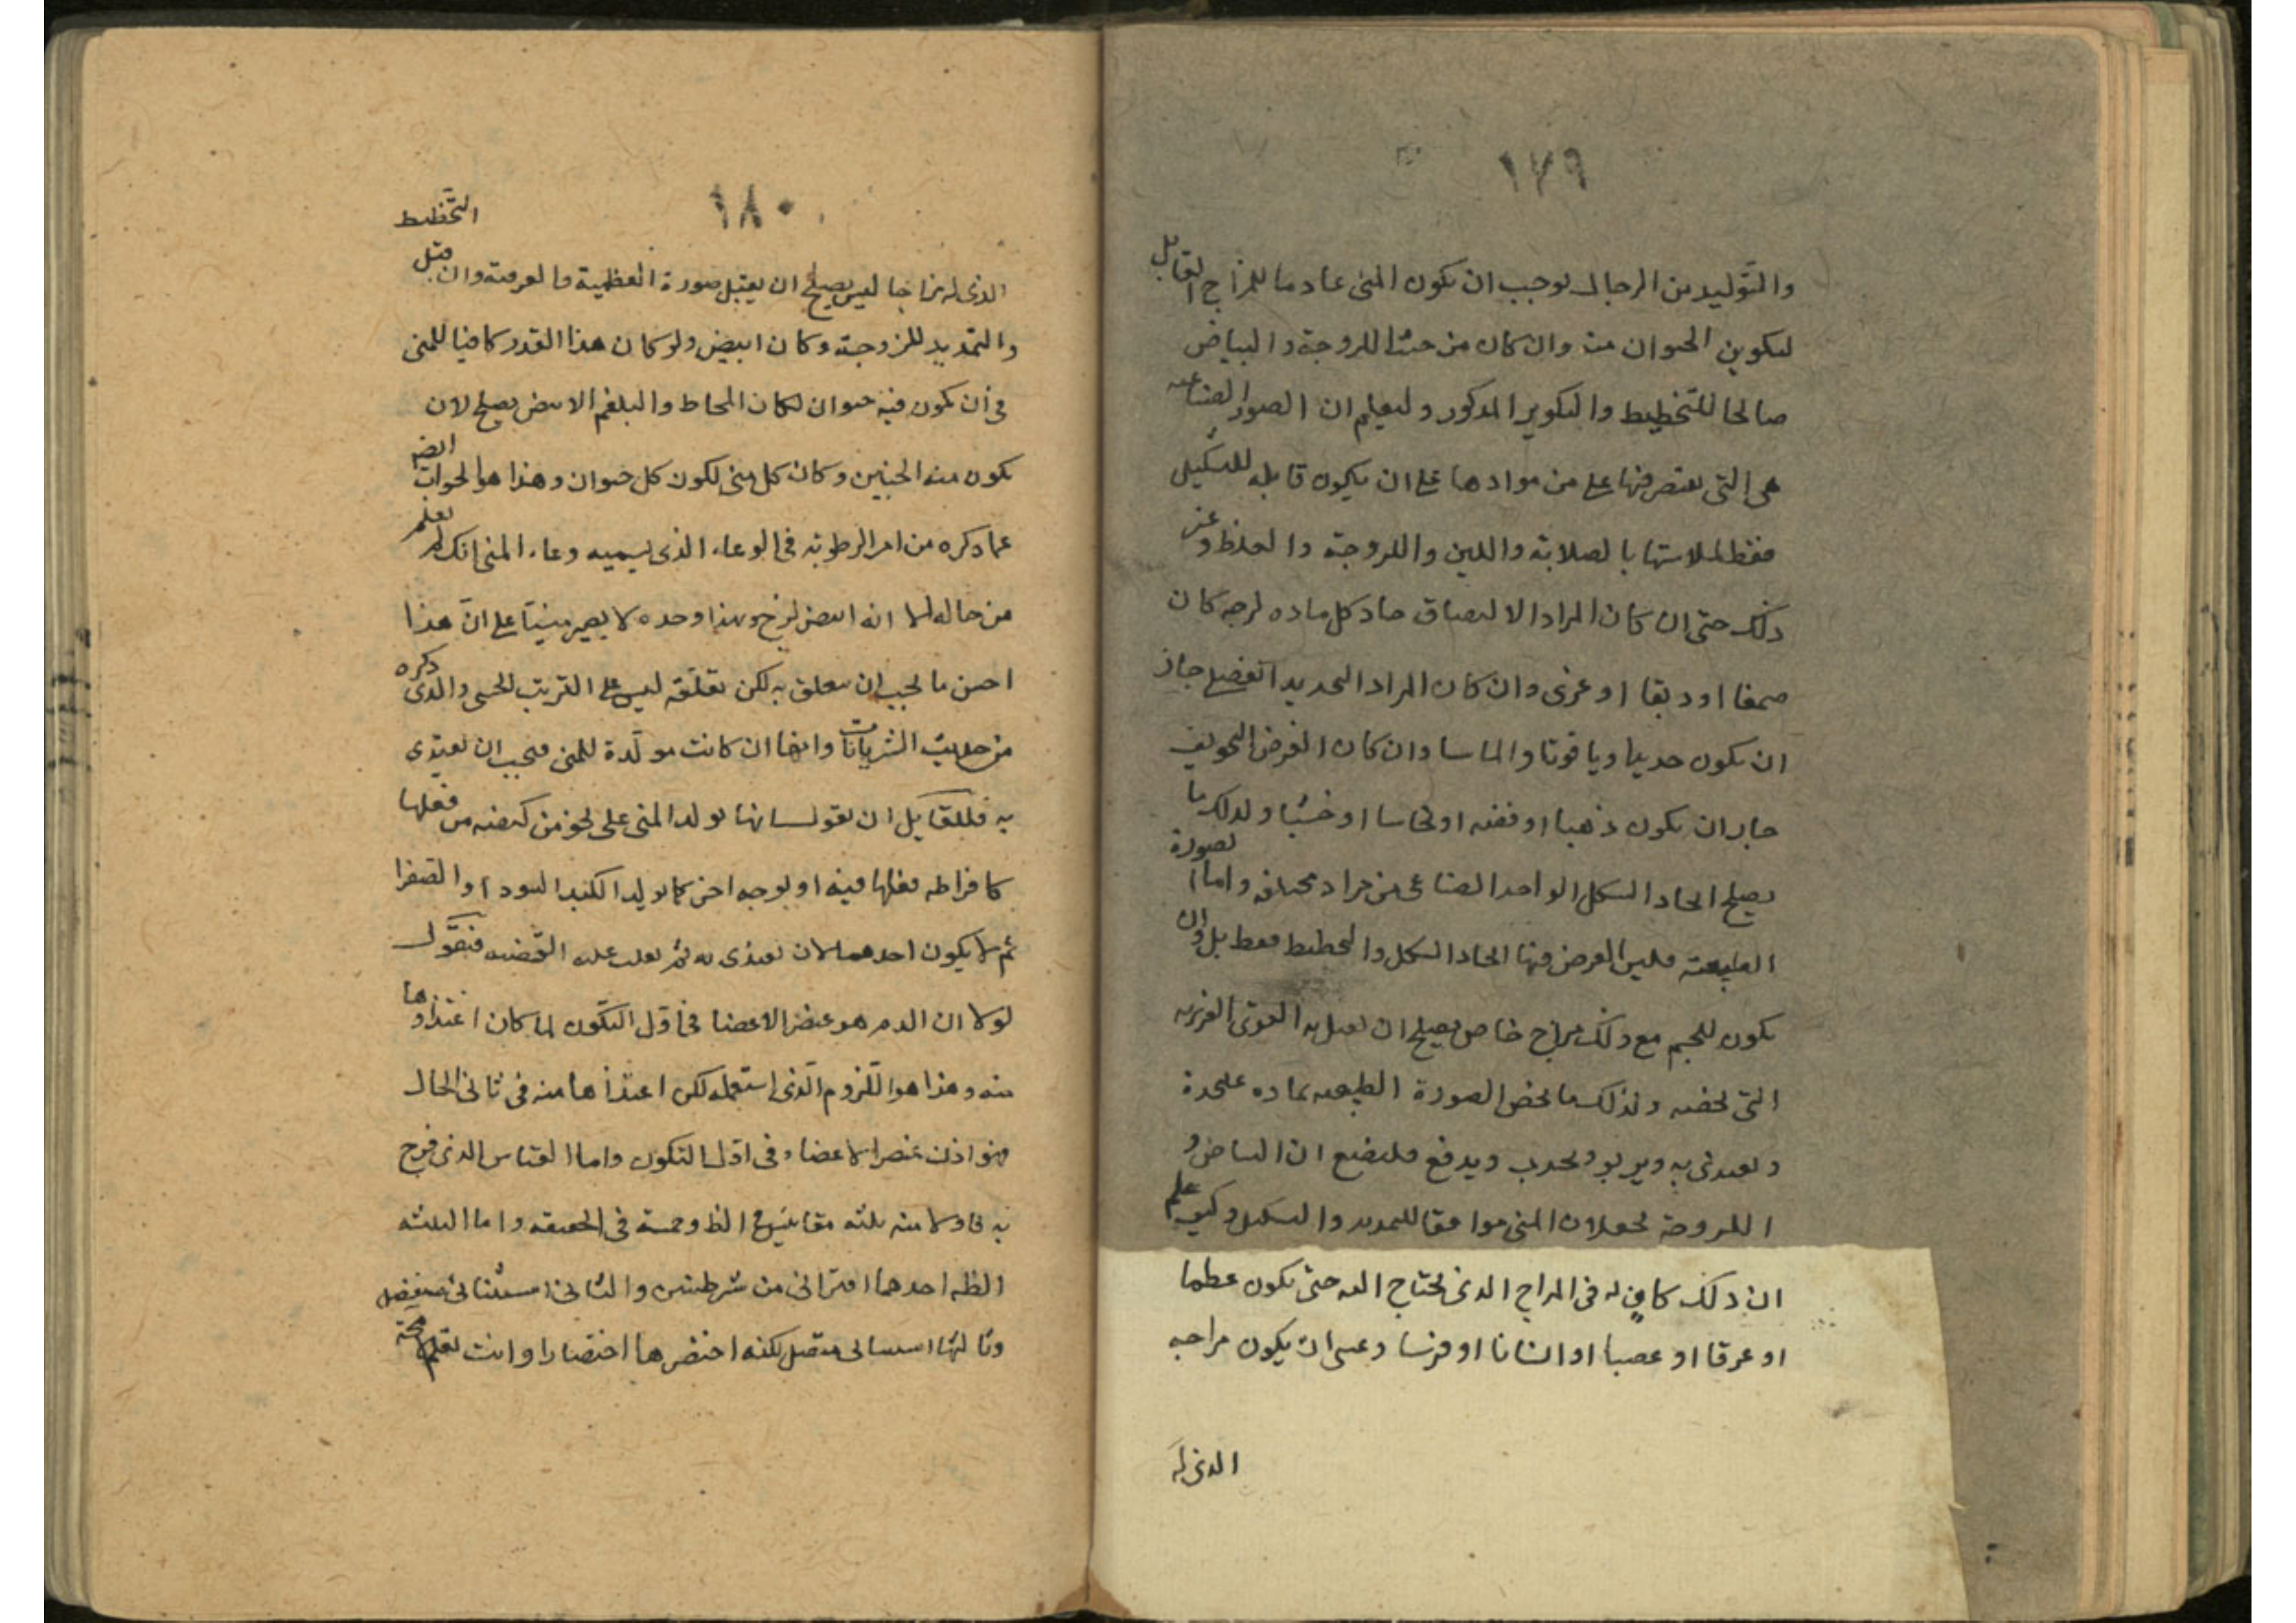 ١٧٩
والتوليد من الرجال لوجب ان يكون المنى عادما للمزاج القابل
لتكوين الحيوان منه وان كان من حيث اللزوجة والبياض
صالحا للتخطيط والتكوير المذكور وليعلم ان الصور الصناعيه
هى التى يقتصر فيها على من موادها على ان يكون قابله للتشكيل
فقط لملاستها بالصلابة واللين واللزوجة والغلظ وغير
ذلك حتى ان كان المراد الالتصاق جاد كل ماده لزجه كان
صمغا او دبقا او غرى وان كان المراد التحديد القصيل جاز
ان يكون حديدا وياقوتا والماسا وان كان الغرض التجويف
جاز ان يكون ذهبا او فضه او نحاسا او خشبا ولذلك ما
يصلح اتحاد الشكل الواحد الصناعى من مواد مختلفه واما الصورة
الطبيعية فليس الغرض فيها اتحاد الشكل والتخطيط فقط بل وان
يكون للجسم مع ذلك مزاج خاص يصلح ان تفعل به القوى الغريزيه
التى تخصه ولذلك ما تخص الصورة الطبيعيه بماده علىحدة
وتغتذى به ويربو ويجذب ويدفع فليضع ان البياض و
اللزوجة يجعلان المنى موافقا للتمديد والتشكيل وكيف علم
ان ذلك كافٍ له فى المزاج الذى يحتاج اليه حتى يكون عظما
او عرقا او عصبا او انسانا او فرسا وعسى ان يكون مزاجه
الذى له
١٨٠
الذى له مزاجا ليس يصلح ان يقبل صورة العظمية والعرقية وان قبل التخطيط
والتمديد للزوجته وكان ابيض ولو كان هذا القدر كافيا للمنى
فى أن يكون فيه حيوان لكان المخاط والبلغم الابيض يصلح لان
يكون منه الجنين وكان كل منى لكون كل حيوان وهذا هو الجواب ايضه
عما ذكره من امر الرطوبة فى الوعاء الذى يسميه وعاء المنى انك لم تعلم
من حاله الا انه ابيض لزج وبهذا وحده لا يصير منيّا على انّ هذا
احسن ما يجب ان يتعلق به لكن تعلّقه ليس على القريب الحسى والذى ذكره
من حديث الشريانات وانها ان كانت مولّدة للمنى فيجب ان تغتذى
به فللقايل ان يقول انها تولد المنى على نحو من كيفيه من فعلها
كافراطه فعلها فيه او بوجه اخر كما يولد الكبد السودا والصفرا
ثم لا يكون احدهما لان تغتذى به ثم نقلب عليه القضيه فنقول
لولا ان الدم هو عنصر الاعضا فى اوّل التكون لما كان اغتذاوها
منه وهذا هو اللزوم الذى استعمله لكن اغتذاها منه فى ثانى الحال
فهو اذن عنصر الاعضاء فى اوّل التكون واما القياس الذى فرح
به فاولا منه ثلثه مقاييس فى الظ وخمسة فى الحقيقه واما الثلثه
الظه احدهما اقترانى من شرطيتين والثانى استثنائى منفصل
وثالثها استثنائى متصل لكنه اختصرها اختصارا وانت تعلم